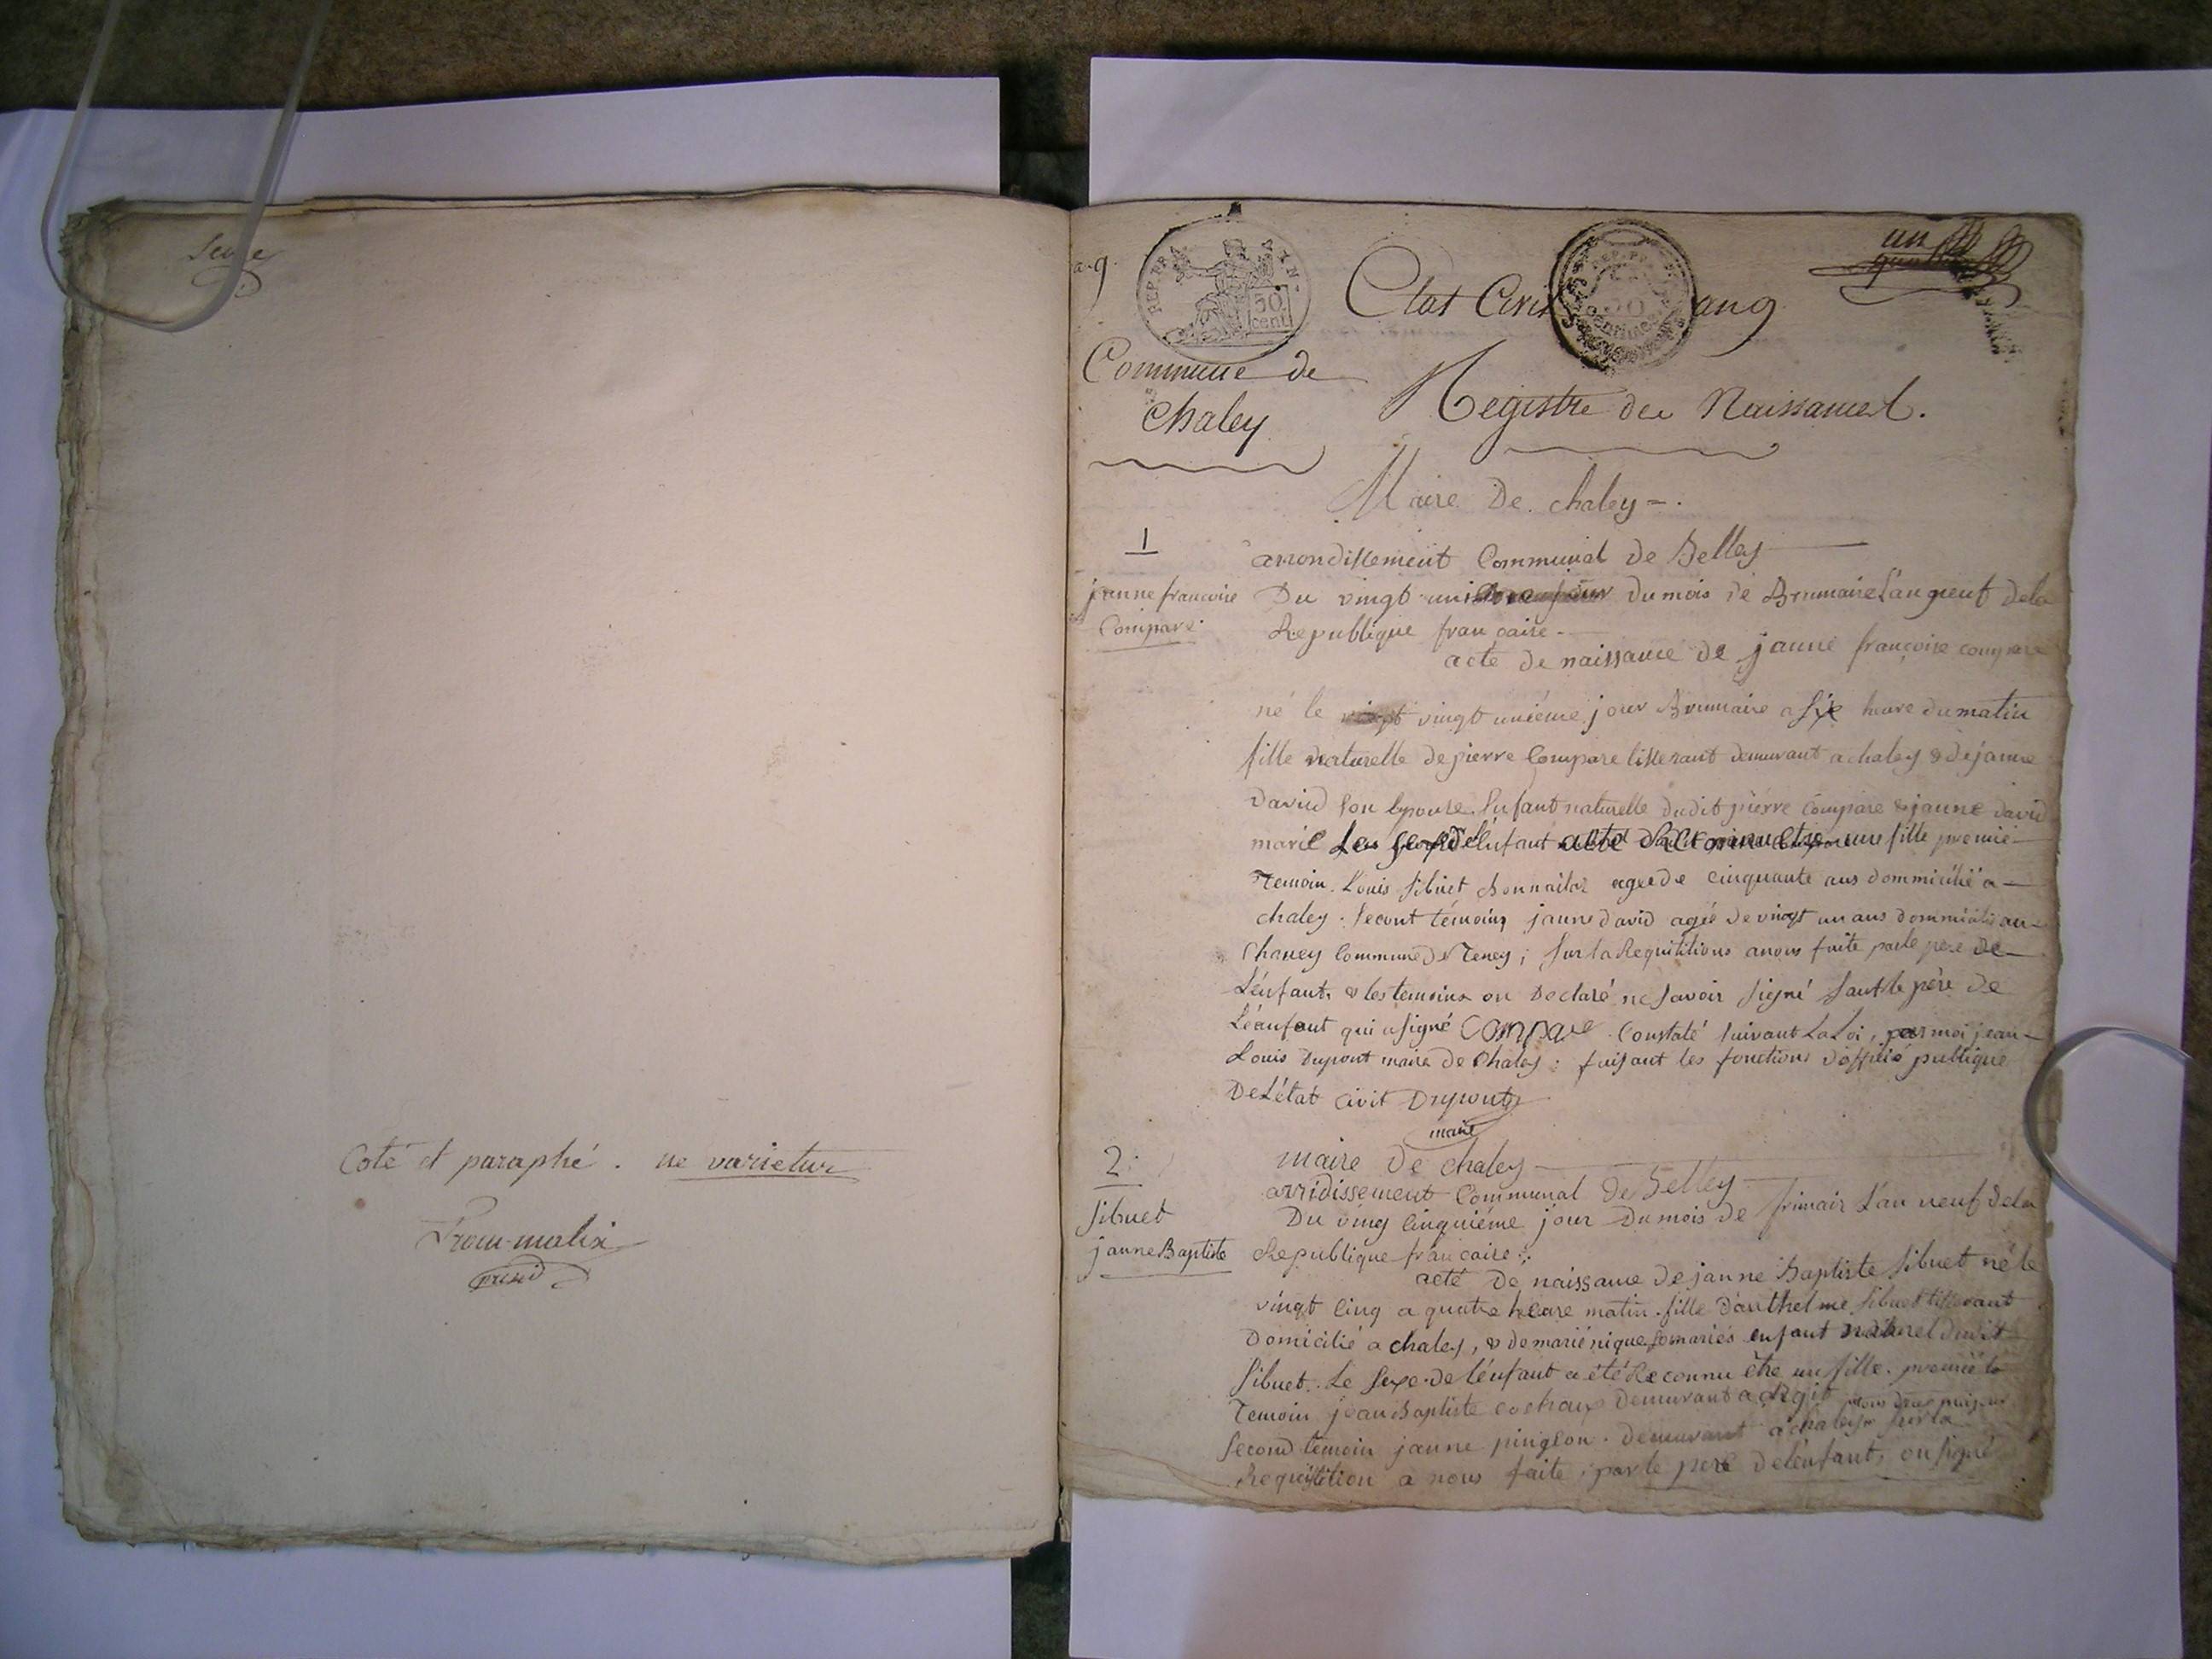 Coté et paraphé. ne varietur
présid
an 9
REP. FRA
50
cent
Etat Civil an 9
un
Commune de
chaley
Registre des Naissances.
Maire De chaley =.
1
arrondissement Communal de Belley
janne francoise
Compare
Du vingt un du mois de Brumaire L'an neuf dela
Republique francaise.
acte de naissance de janne françoise compare
né le vingt unième jour Brumaire a six heure du matin
fille naturelle de pierre Compare tisserant demurant a chaley & de janne
David son Epouse. Enfant naturelle dudit pierre Compare & janne david
marié Le sexe de l'enfant a été Reconnu etre une fille premié
Temoin. Louis Sibuet agee de cinquante ans dommicilié a
chaley. Second témoing janne david agée de vingt un ans dommicilié au
Chaney Commune De Teney; Sur la Requisitions anous faite parle pere de
L'enfant. & les temoins on Declaré ne Savoir Signé Sauf le père de
Léenfant qui a signé Compare Constaté Suivant La Loi, par moi jean
Louis Dupont maire De Chaley: faisant les fonctions d'officié publique
De L'état Civit Dupont
maire
2.
maire De chaley
arridissement Communal de Belley
Sibuet
janne Baptiste
Du ving Cinquiéme jour Du mois de frimair L'an neuf dela
Republique francaise.
acté De naissance de janne Baptiste Sibuet né le
vingt Cinq a quatre heure matin. fille D'anthelme Sibuet tisserant
Domicilié a chaley, & de marié nique enfant naturel dudit
Sibuet. Le Sexe de l'enfant a été Reconnu être un fille. premié
Temoin jean Baptiste cochaux demurant a
Second temoin janne pingeon. demurant a chaley Sur la
Requisition a nous faite; par le pere de l'enfant, on signé